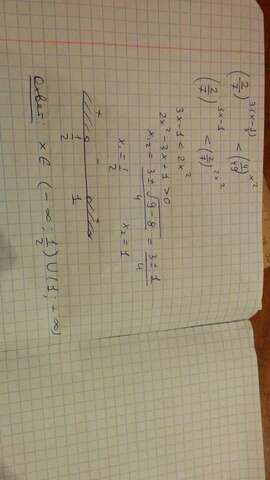 (2/7)^{3(x-1/3)} < (4/49)^{x^2}
(2/7)^{3x-1} < (2/7)^{2x^2}
3x-1 < 2x^2
2x^2-3x+1 > 0
x_{1,2} = (3±√(9-8))/4 = (3±1)/4
x_1 = 1/2 x_2 = 1
+ - +
1/2 1
Ответ: x ∈ (-∞; 1/2) U (1; +∞)